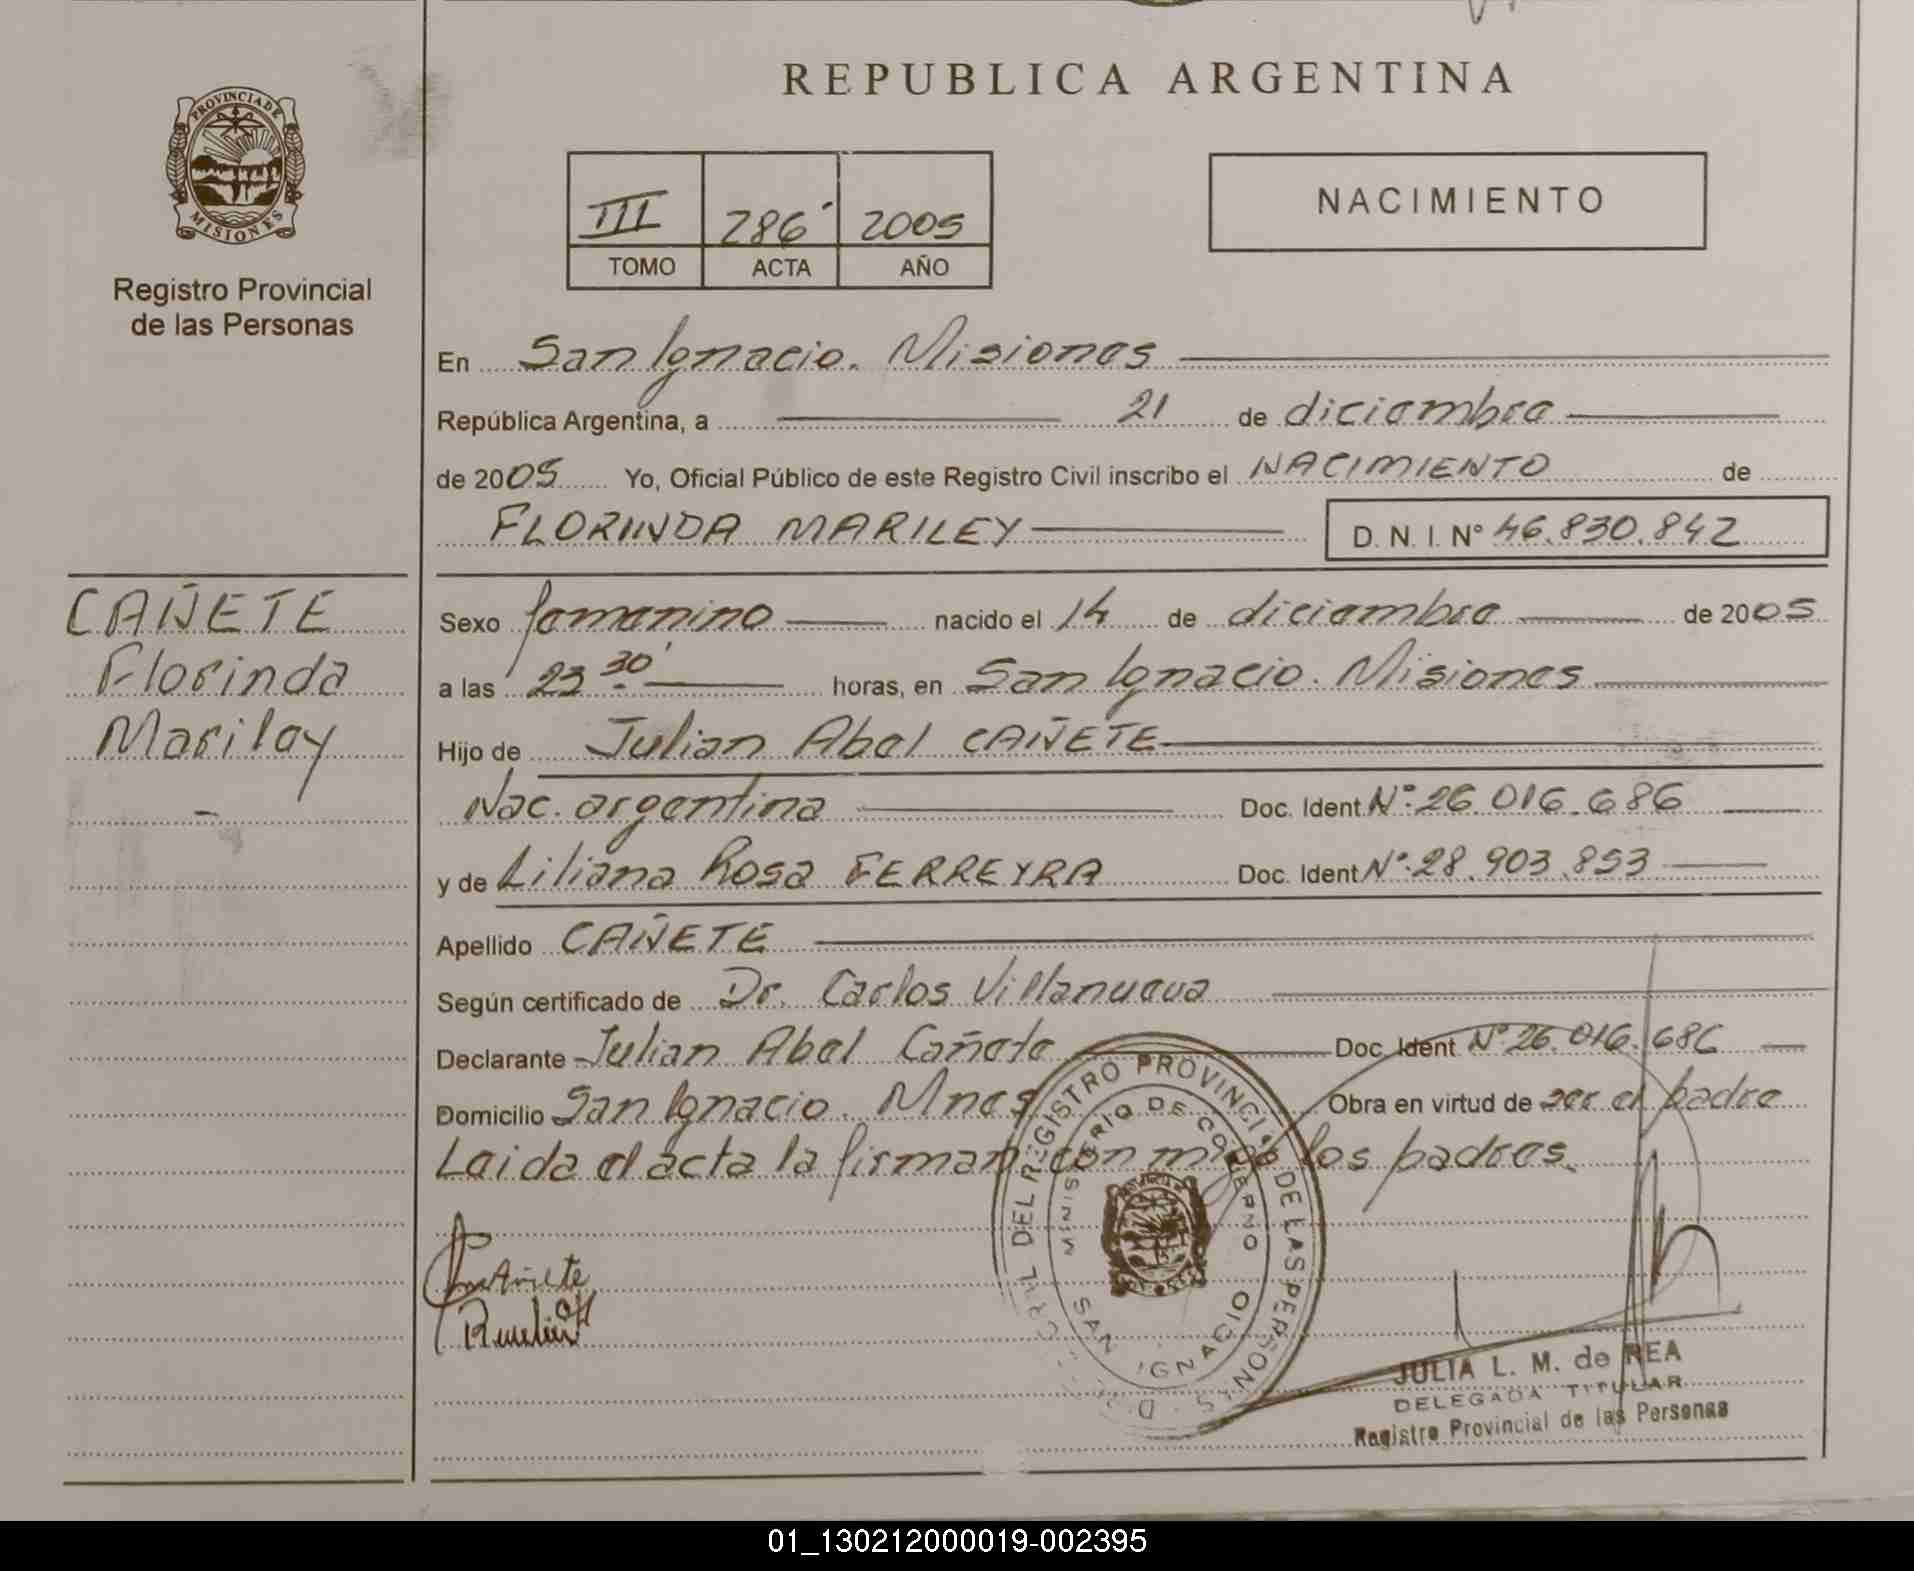 REPUBLICA ARGENTINA
PROVINCIA DE
MISIONES
Registro Provincial
de las Personas
III 286 2005
TOMO ACTA AÑO
NACIMIENTO
En San Ignacio. Misiones
República Argentina, a 21 de diciembre
de 2005 Yo, Oficial Público de este Registro Civil inscribo el NACIMIENTO de
FLORINDA MARILEY D. N. I. Nº 46.830.842
CAÑETE
Florinda
Mariley
Sexo femenino nacido el 14 de diciembre de 2005
a las 23 30' horas, en San Ignacio. Misiones
Hijo de Julian Abel CAÑETE
Nac. argentina Doc. Ident. Nº: 26.016.686
y de Liliana Rosa FERREYRA Doc. Ident. Nº: 28.903.853
Apellido CAÑETE
Según certificado de Dr. Carlos Villanueva
Declarante Julian Abel Cañete Doc. Ident Nº 26.016.686
Domicilio San Ignacio. Mnes Obra en virtud de ser el padre
Leida el acta la firman con migo los padres.
DEL REGISTRO PROVINCIAL DE LAS PERSONAS
MINISTERIO DE GOBIERNO
SAN IGNACIO
JULIA L. M. de REA
DELEGADA TITULAR
Registro Provincial de las Personas
01_130212000019-002395